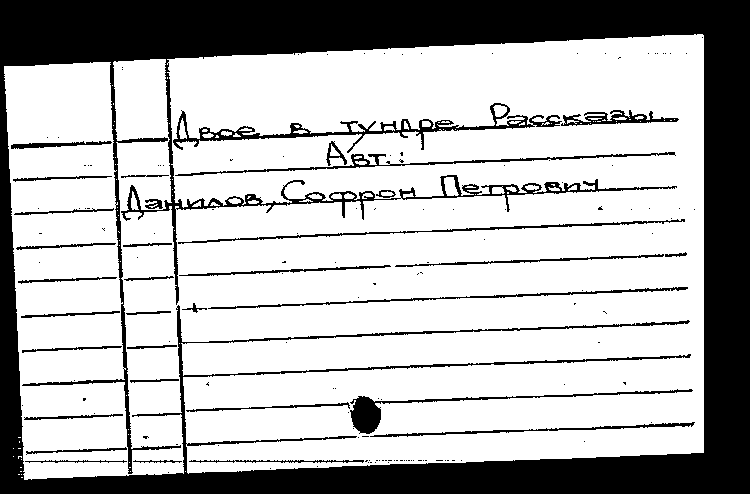 Двое в тундре. Рассказы.
Авт.:
Данилов, Софрон Петрович